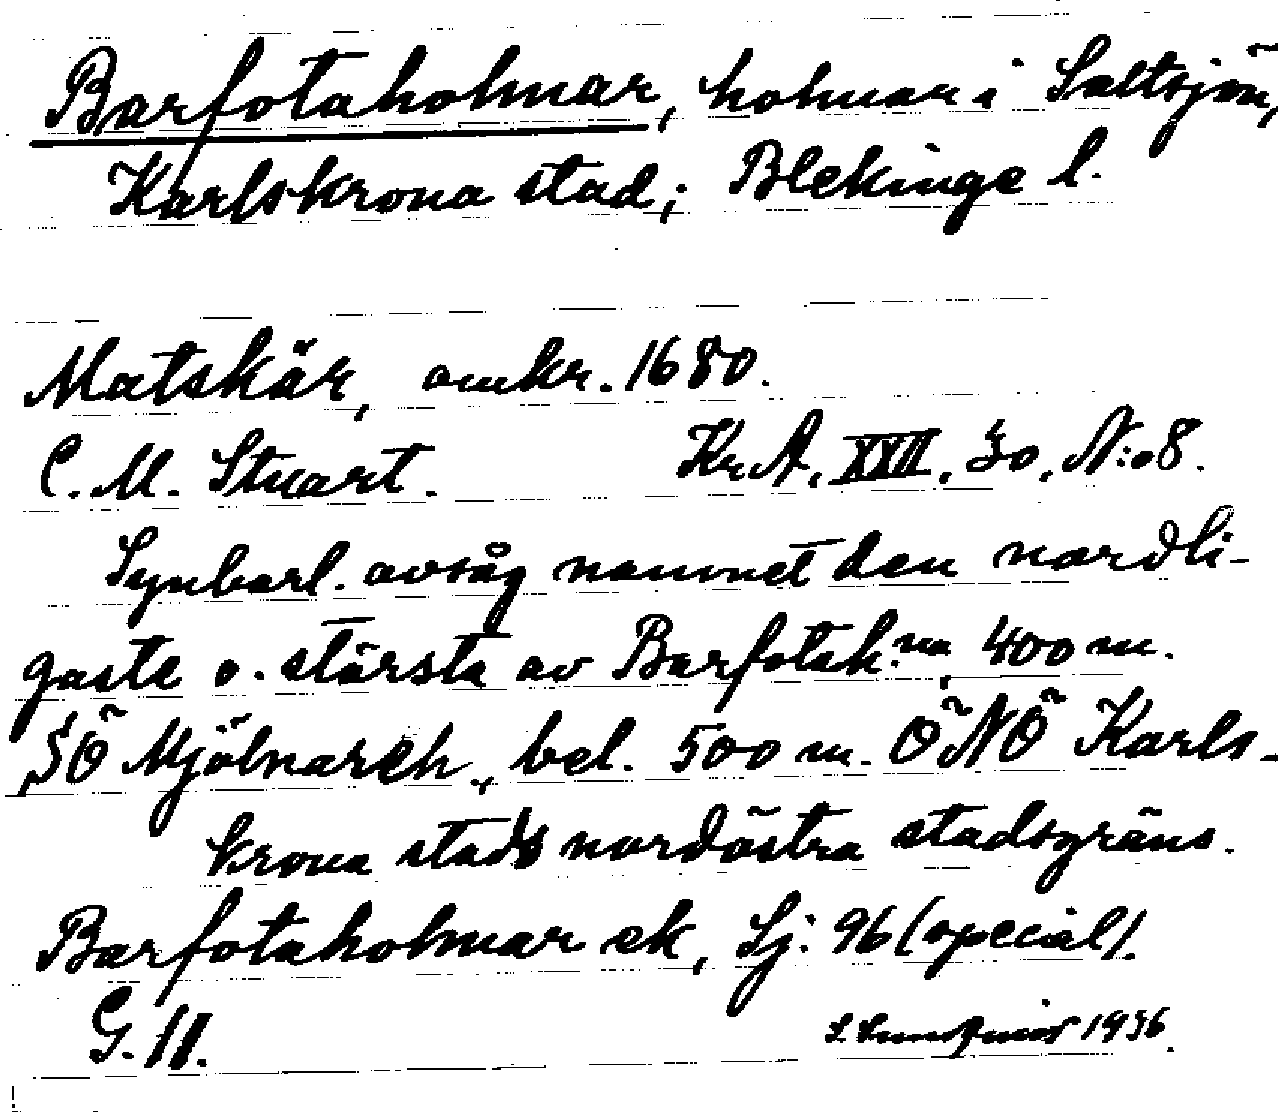 Barfotaholmar, holmar i Saltsjön,
Karlskrona stad; Blekinge l.
Matskär, omkr. 1680.
C. M. Stuart. Kr. A. XXII, 30, N:o 8.
Synbarl. avsåg namnet den nordli-
gaste o. största av Barfotah:na, 400 m.
SÖ Mjölnareh., bel. 500 m. ÖNÖ Karls-
krona stads nordöstra stadsgräns.
Barfotaholmar ek, Sj: 96 (special).
G. 11.
1936.